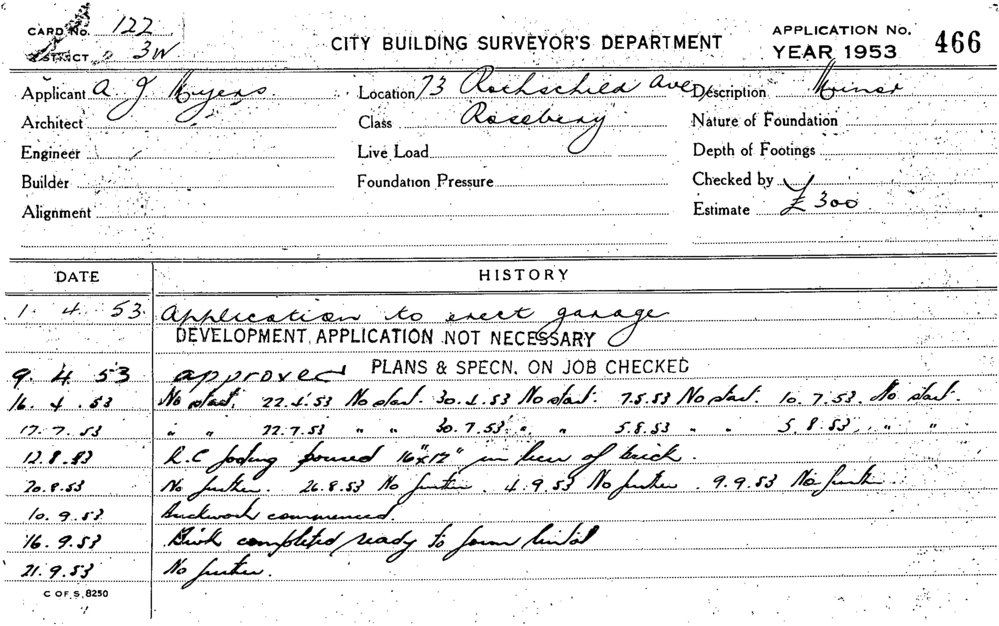 CARD No. 122
DISTRICT 3W
CITY BUILDING SURVEYOR'S DEPARTMENT
APPLICATION No.
YEAR 1953 466
Applicant A J Myers Location 73 Rothschild Ave Description Minor
Architect Class Rosebery Nature of Foundation
Engineer Live Load Depth of Footings
Builder Foundation Pressure Checked by
Alignment Estimate £300
DATE HISTORY
1 4 53 Application to erect garage
DEVELOPMENT APPLICATION NOT NECESSARY
9. 4 53 approved PLANS & SPECN. ON JOB CHECKED
16. 4. 53 No start. 22.4.53 No start. 30.4.53 No start. 7.5.53 No start. 10.7.53. No start.
17.7.53 " " 22.7.53 " " 30.7.53 " " 5.8.53 " " 5.8.53 " "
12.8.53 R.C footing poured 16"x12" in lieu of brick.
20.8.53 No further. 26.8.53 No further. 4.9.53 No further. 9.9.53 No further
10.9.53 Brickwork commenced.
16.9.53 Brick completed ready to form lintol
21.9.53 No further.
C OF S. 8250